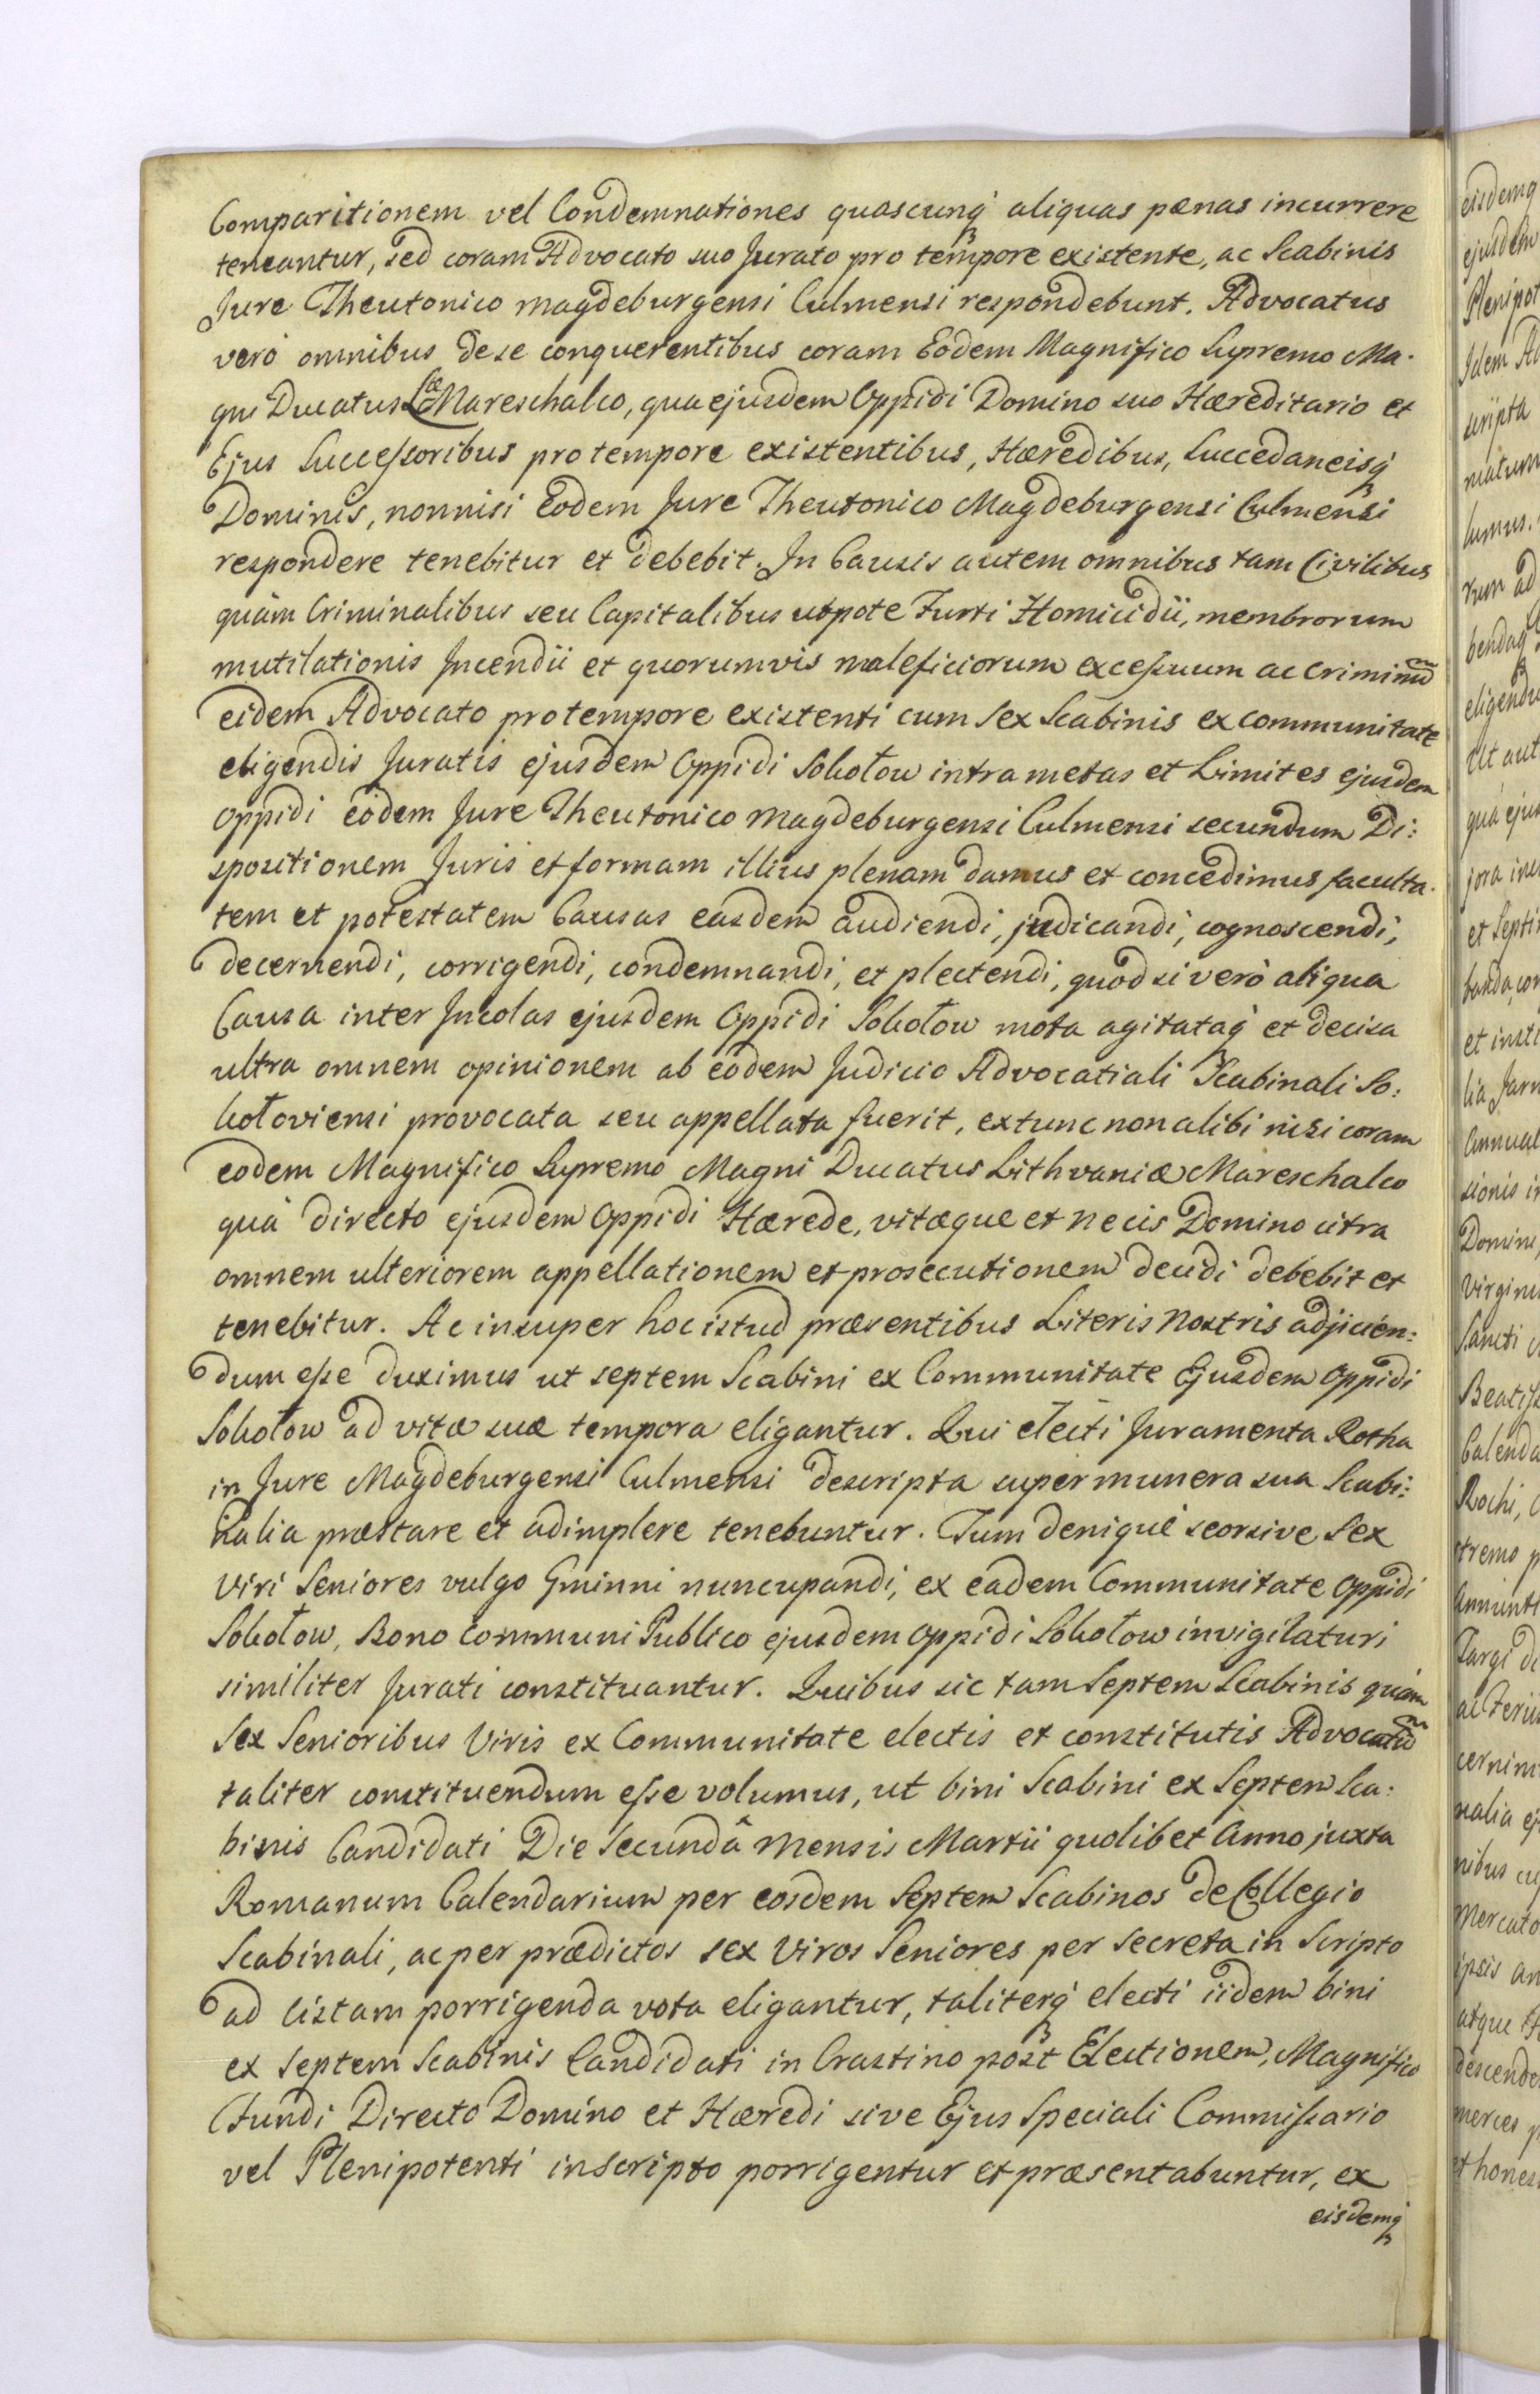 Comparitionem vel Condemnationes quascunq́ aliquas pænas incurrere
teneantur, sed coram Advocato suo Jurato pro tempore existente, ac Scabinis
Jure Theutonico magdeburgensi Culmensi respondebunt. Advocatus
verò omnibus de se conquerentibus coram Eodem Magnifico Supremo Ma-
gni Ducatus Læ Mareschalco, qua ejusdem Oppidi Domino suo Hæreditario et
Ejus Successoribus pro tempore existentibus, Hæredibus, Succedaneisq́
Dominis, nonnisi Eodem Jure Theutonico Magdeburgensi Culmensi
respondere tenebitur et debebit. In Causis autem omnibus tam Civilibus
quàm Criminalibus seu Capitalibus utpote Furti Homicidii, membrorum
mutilationis Incendii et quorumvis maleficiorum excessuum ac criminū
eidem Advocato pro tempore existenti cum sex Scabinis ex communitate
eligendis Juratis ejusdem Oppidi Sokołow intra metas et Limites ejusdem
Oppidi eodem Jure Theutonico magdeburgensi Culmensi secundum Di:
spositionem Juris et formam illius plenam damus et concedimus faculta-
tem et potestatem Causas easdem audiendi, judicandi, cognoscendi,
decernendi, corrigendi, condemnandi, et plectendi, quod si verò aliqua
Causa inter Incolas ejusdem Oppidi Sokołow mota agitataq́ et decisa
ultra omnem opinionem ab eodem Judicio Advocatiali Scabinali So:
kołoviensi provocata seu appellata fuerit, extunc non alibi nisi coram
eodem Magnifico Supremo Magni Ducatus Lithvaniæ Mareschalco
quà directo ejusdem Oppidi Hærede, vitæque et necis Domino citra
omnem ulteriorem appellationem et prosecutionem decidi debebit et
tenebitur. Ac insuper hoc istud præsentibus Literis Nostris adjicien:
dum esse duximus ut septem Scabini ex Communitate Ejusdem Oppidi
Sokołow ad vitæ suæ tempora eligantur. Qui electi Juramenta Rotha
in Jure Magdeburgensi Culmensi descripta super munera sua Scabi:
nalia præstare et adimplere tenebuntur. Tum denique seorsive Sex
Viri Seniores vulgo Gminni nuncupandi, ex eadem Communitate Oppidi
Sokołow, Bono Communi Publico ejusdem Oppidi Sokołow invigilaturi
similiter Jurati constituantur. Quibus sic tam Septem Scabinis quàm
Sex Senioribus Viris ex Communitate electis et constitutis Advocatū
taliter constituendum esse volumus, ut bini Scabini ex Septem Sca:
binis Candidati Die Secundâ Mensis Martii quolibet Anno juxta
Romanum Calendarium per eosdem Septem Scabinos de Collegio
Scabinali, ac per prædictos sex Viros Seniores per secreta in Scripto
ad listam porrigenda vota eligantur, taliterq́ electi iidem bini
ex Septem Scabinis Candidati in Crastino post Electionem, Magnifico
Fundi Directo Domino et Hæredi sive Ejus Speciali Commissario
vel Plenipotenti in Scripto porrigentur et præsentabuntur, ex
eisdemq́
eisdemq
ejusdem
Plenipot
Idem Ad
scripta
lumus.
rum ad
eligend
Ut aut
quà ejus
et Septi
et insti
Annual
sionis i
Domini
Virginis
Sancti
Calenda
Rochi,
stremo p
Targi di
nalia ej
nibus cu
Mercato
ipsis an
atque
descende
merces p
et hones